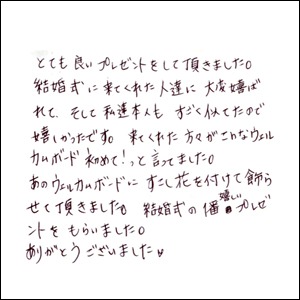 とても良いプレゼントをして頂きました。
結婚式に来てくれた人達に大変喜ば
れて、そして私達本人もすごく似てたので
嬉しかったです。来てくれた方々がこんなウェル
カムボード初めて!っと言ってました。
あのウェルカムボードにすこし花を付けて飾ら
せて頂きました。結婚式の僅嬉しいプレゼ
ントをもらいました。
ありがとうございました